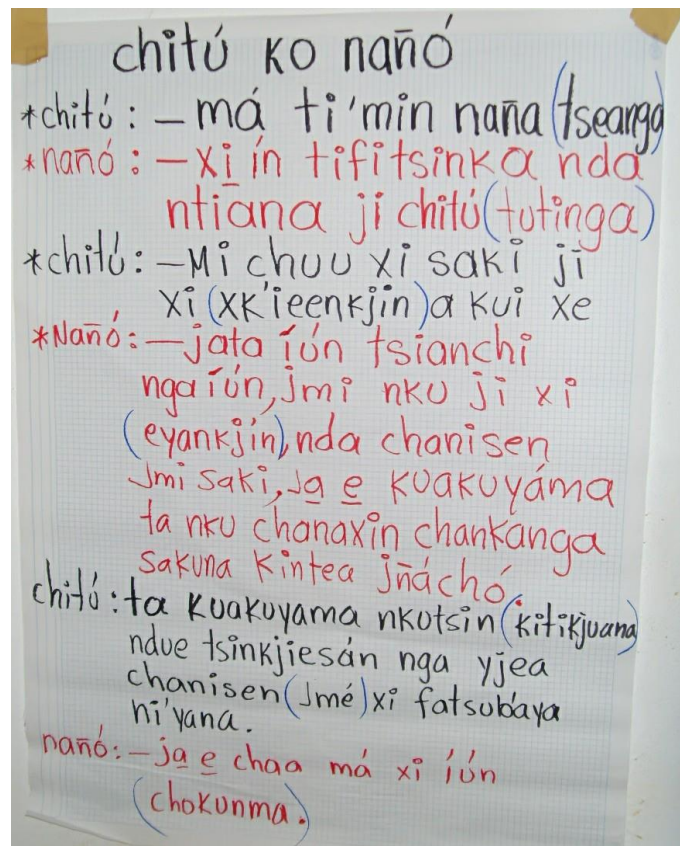 chitú ko nañó
*chitú: – má ti'min naña (tseanga)
*nañó: – xi ín tifitsinka nda
ntiana ji chitú (tutinga)
*chitú: – Mi chuu xi saki ji
xi (xk'ieenkjin) a kui xe
*Nañó: – jata íún tsianchi
nga íún, jmi nku ji xi
(eyankjín), nda chanisen
Jmi saki, ja̱ e̱ kuakuyáma
ta nku chanaxin chankanga
sakuna kintea jñáchó.
chitú: ta kuakuyama nkutsin (kitikjuana)
ndue tsinkjiesán nga yjea
chanisen (Jmé) xi fatsub'aya
ni'yana.
nañó: – ja̱ e̱ chaa má xi íún
(chokunma.)